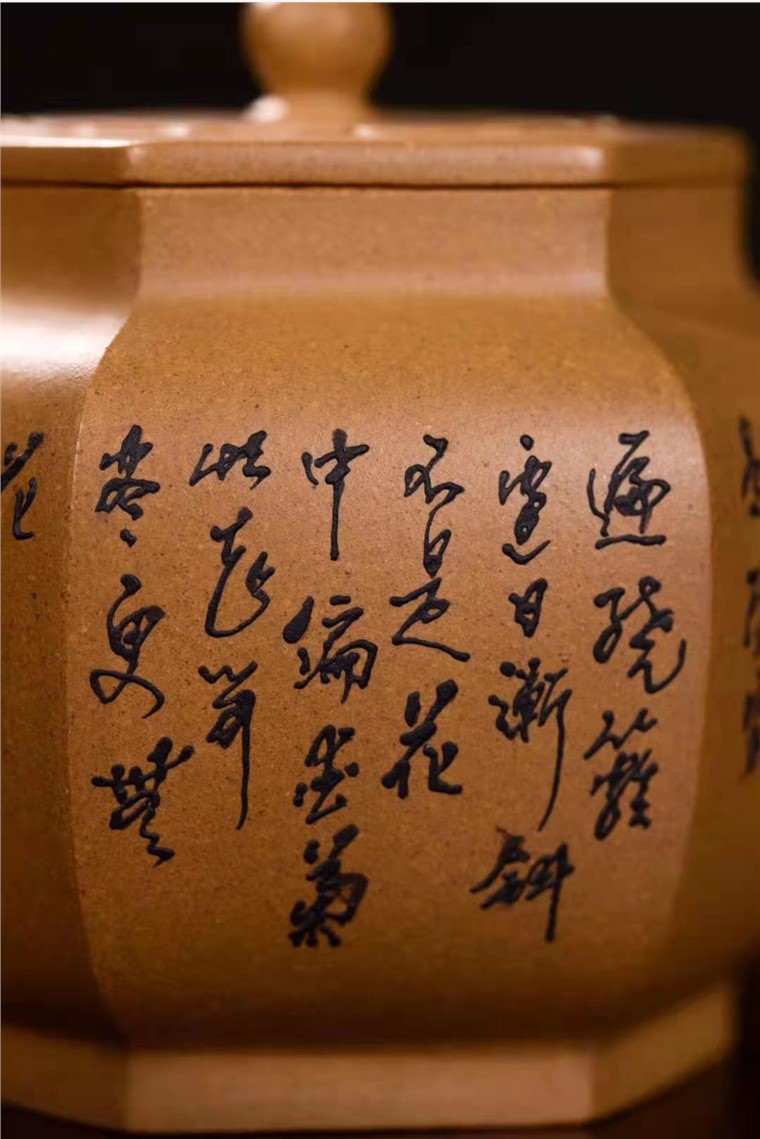 遍繞籬
邊日漸斜
不是花
中偏愛菊
此花開
尽更無
花